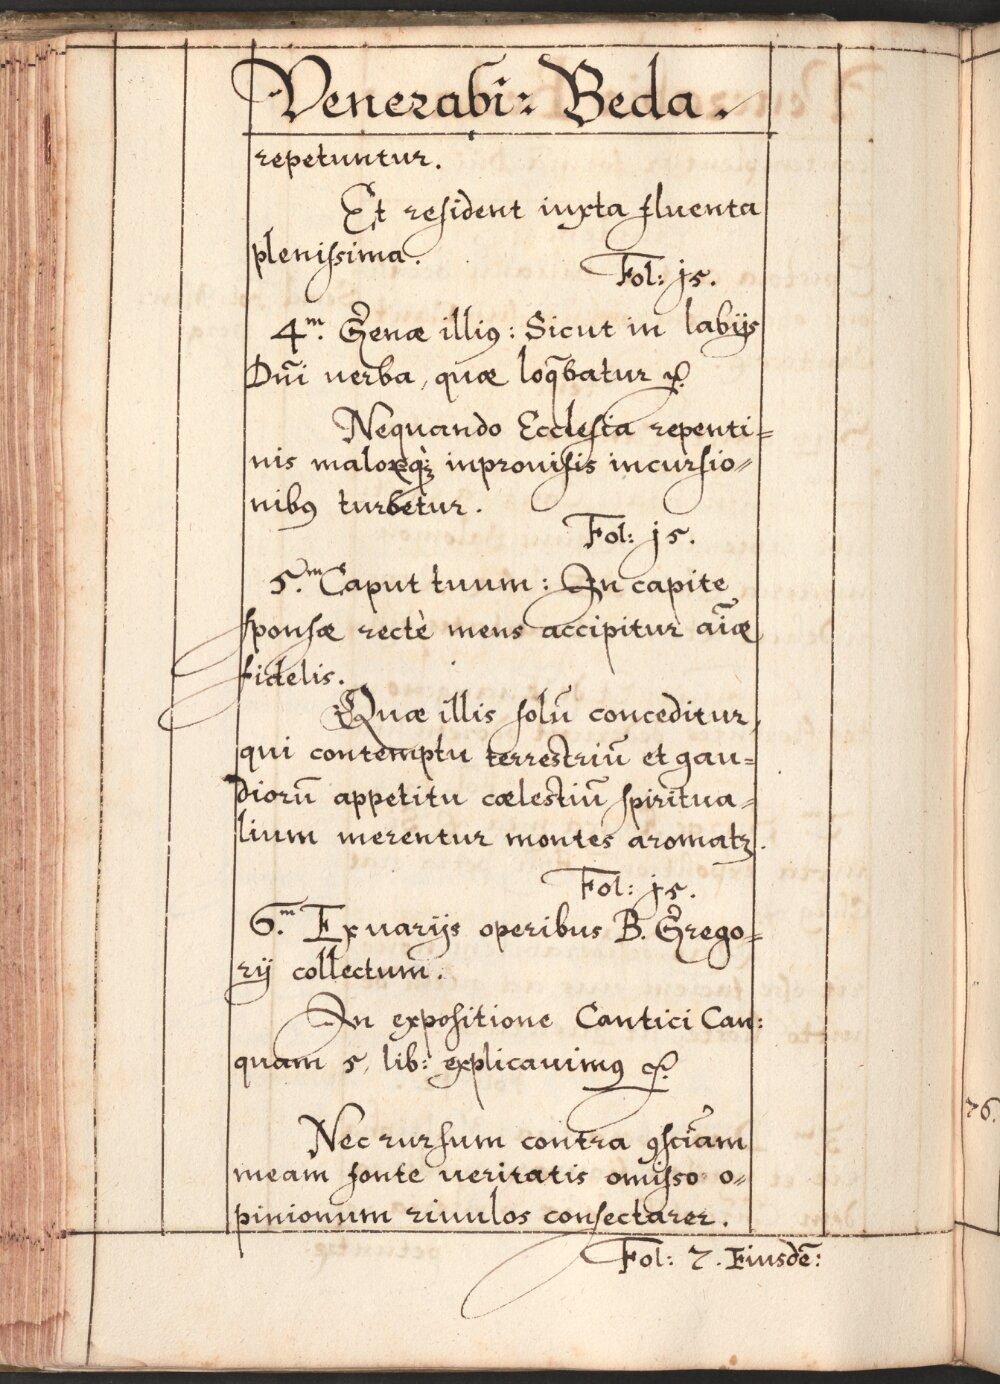 Venerabi: Beda.
repetuntur.
Et resident iuxta fluenta
plenissima.
Fol: 15.
4.m Genæ illi9: Sicut in labijs
Dn̄i uerba, quæ loq̄batur
Nequando Ecclesia repenti=
nis inprouisis incursio=
nib9 turbetur.
Fol: 15.
5.m Caput tuum: In capite
sponsæ rectè mens accipitur aīæ
fidelis.
Quæ illis solū conceditur,
qui contemptu terrestriū et gau=
diorū appetitu cælestiū spiritua=
lium merentur montes aromatꝫ.
Fol: 15.
6.m Ex uarijs operibus B. Grego=
rij collectum.
In expositione Cantici Can:
quam 5. lib: explicauim9
Nec rursum contra ꝯsciam
meam fonte ueritatis omisso o=
pinionum riuulos consectarer.
Fol: 7. Eiusdē:
76.